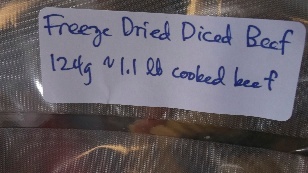 Freeze Dried Diced Beef
124g ~ 1.1 lb cooked beef